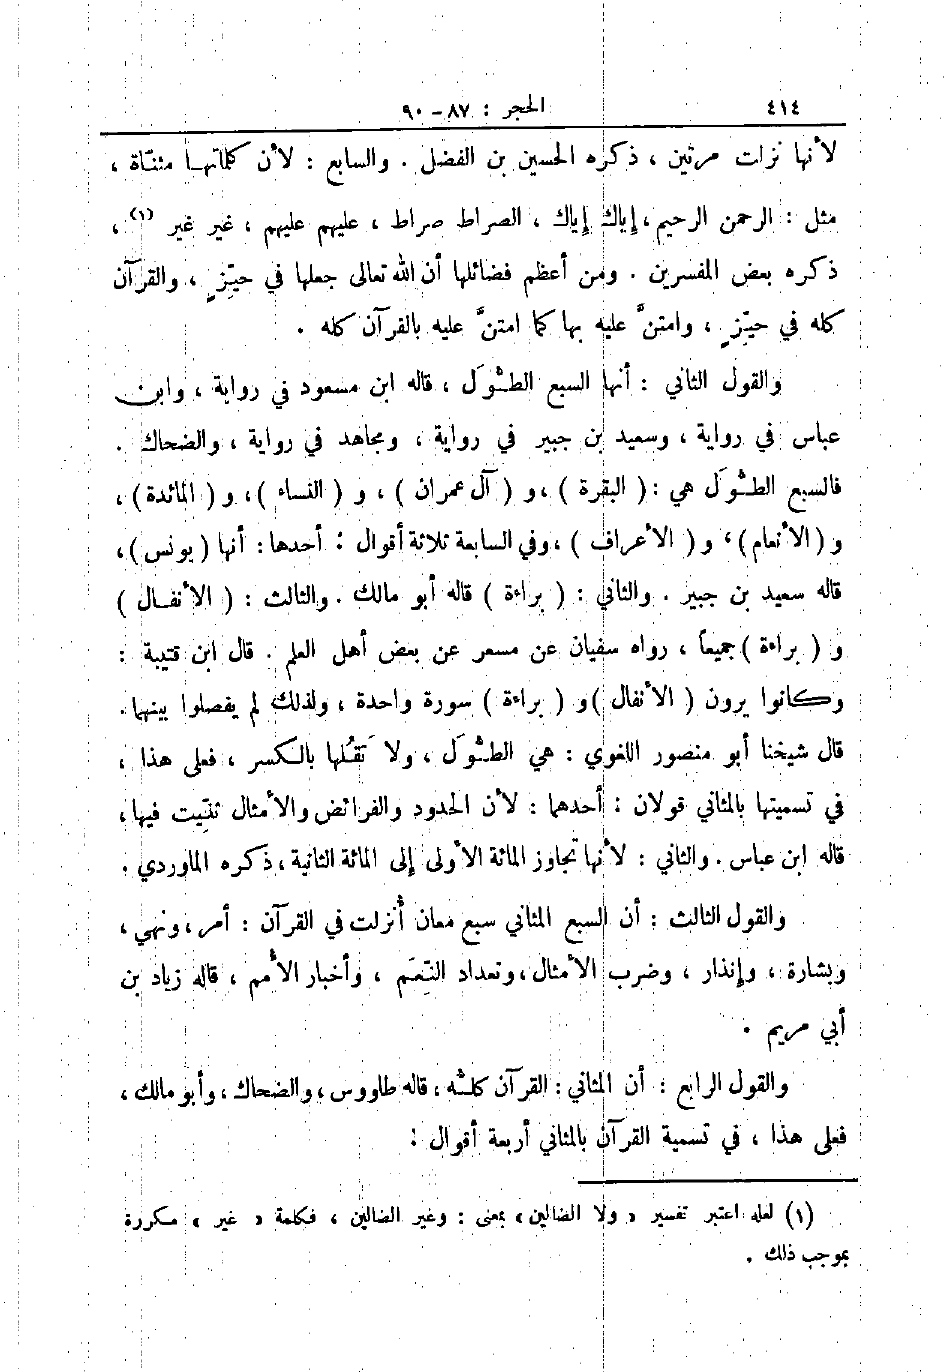 ٤١٤ الحجر : ٨٧ – ٩٠
لأنها نزلت مرتين ، ذكره الحسين بن الفضل . والسابع : لأن كلماتها مثنّاة ،
مثل : الرحمن الرحيم ، إياك إياك ، الصراط صراط ، عليهم عليهم ، غير غير (١) ،
ذكره بعض المفسرين . ومن أعظم فضائلها أن الله تعالى جعلها في حيّزٍ ، والقرآن
كله في حيّزٍ ، وامتنَّ عليه بها كما امتنَّ عليه بالقرآن كله .
والقول الثاني : أنها السبع الطُّوَل ، قاله ابن مسعود في رواية ، وابن
عباس في رواية ، وسعيد بن جبير في رواية ، ومجاهد في رواية ، والضحاك .
فالسبع الطُّوَل هي : ( البقرة ) ، و ( آل عمران ) ، و ( النساء ) ، و ( المائدة ) ،
و ( الأنعام ) ، و ( الأعراف ) ، وفي السابعة ثلاثة أقوال : أحدها : أنها ( يونس ) ،
قاله سعيد بن جبير . والثاني : ( براءة ) قاله أبو مالك . والثالث : ( الأنفال )
و ( براءة ) جميعاً ، رواه سفيان عن مسعر عن بعض أهل العلم . قال ابن قتيبة :
وكانوا يرون ( الأنفال ) و ( براءة ) سورة واحدة ، ولذلك لم يفصلوا بينهما .
قال شيخنا أبو منصور اللغوي : هي الطُّوَل ، ولا تَقُلها بالكسر ، فعلى هذا ،
في تسميتها بالمثاني قولان : أحدهما : لأن الحدود والفرائض والأمثال ثنّيت فيها ،
قاله ابن عباس . والثاني : لأنها تجاوز المائة الأولى إلى المائة الثانية ، ذكره الماوردي .
والقول الثالث : أن السبع المثاني سبع معان أُنزلت في القرآن : أمر ، ونهي ،
وبشارة ، وإنذار ، وضرب الأمثال ، وتعداد النِّعَم ، وأخبار الأُمم ، قاله زياد بن
أبي مريم .
والقول الرابع : أن المثاني : القرآن كلُّه ، قاله طاووس ، والضحاك ، وأبو مالك ،
فعلى هذا ، في تسمية القرآن بالمثاني أربعة أقوال :
(١) لعله اعتبر تفسير « ولا الضالين » بمعنى : وغير الضالين ، فكلمة « غير » مكررة
بموجب ذلك .